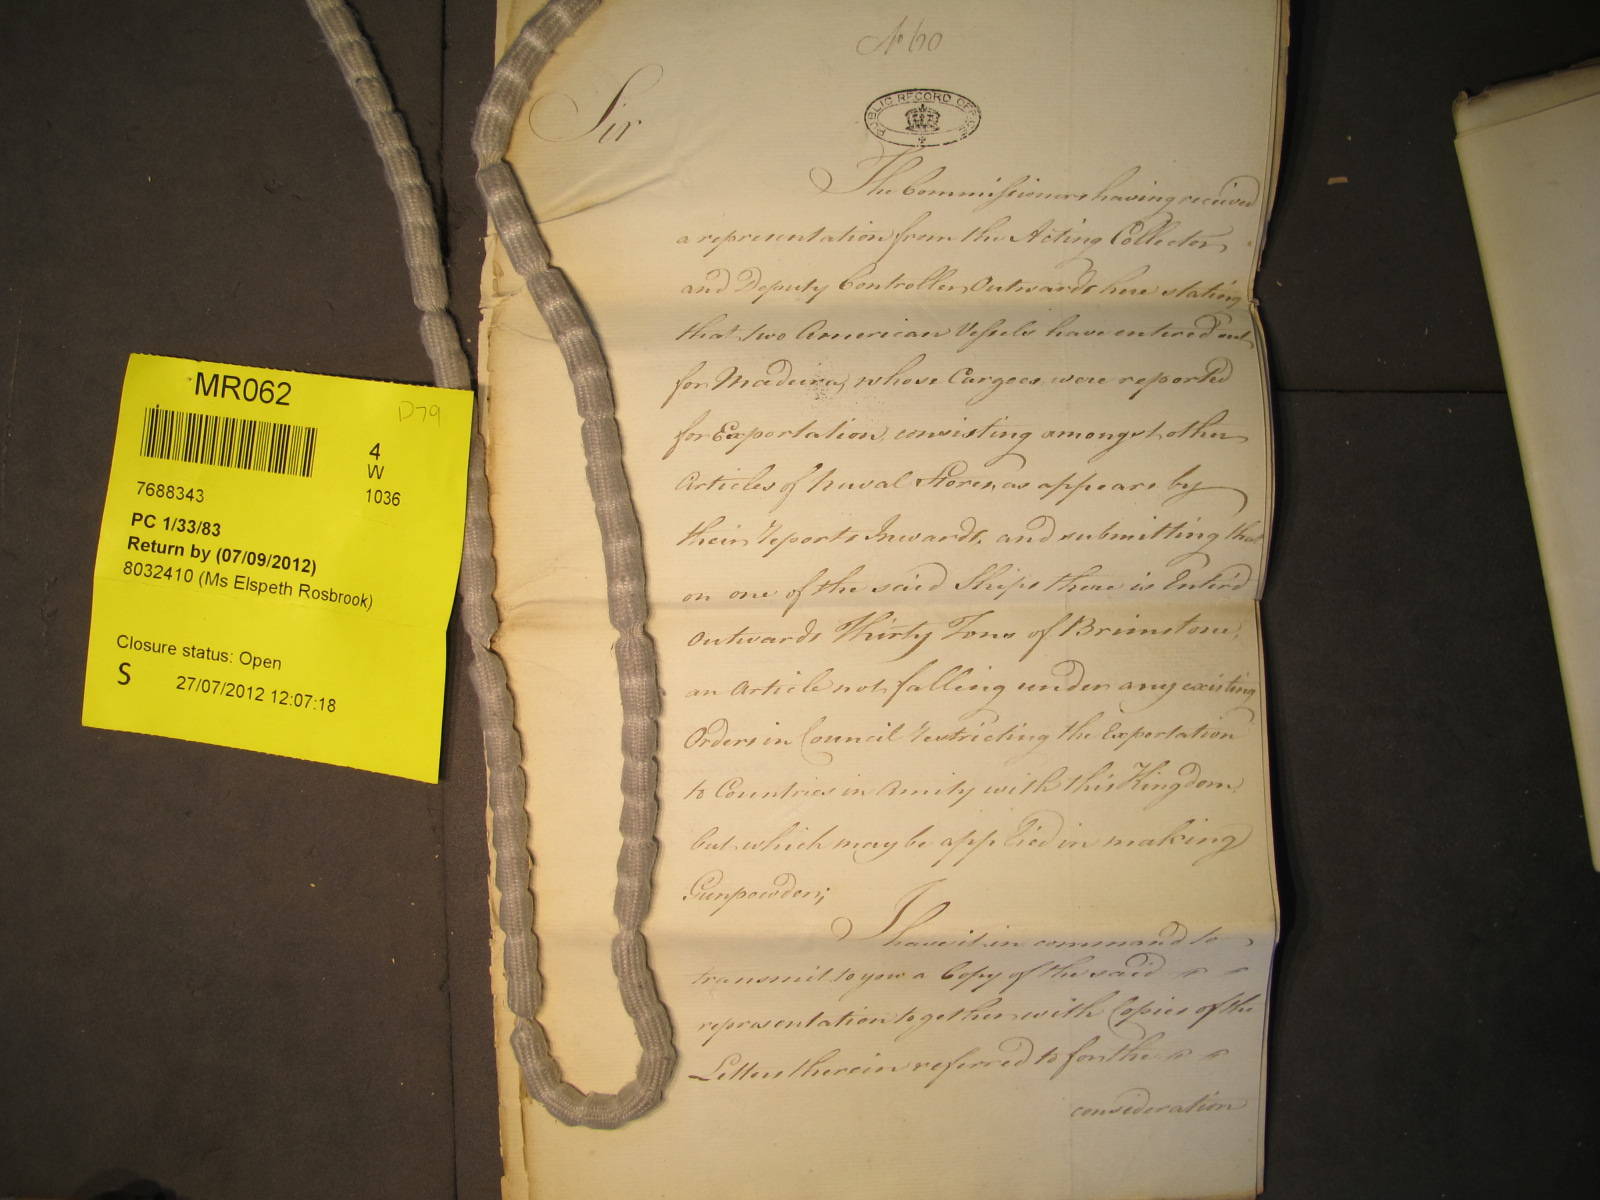 No 60
PUBLIC RECORD OFFICE
Sir
The Commissioners having received
a representation from the Acting Collector
and Deputy Controller Outwards here stating
that two American Vessels have entered out
for Madeira, whose Cargoes were reported
for Exportation, consisting amongst other
Articles of Naval Stores, as appears by
their Reports Inwards, and submitting that
on one of the said Ships there is Enter'd
Outwards Thirty Tons of Brimstone,
an Article not falling under any existing
Orders in Council restricting the Exportation
to Countries in Amity with this Kingdom,
but which may be applied in making
Gunpowder;
I have it in command to
transmit to you a Copy of the said
representation together with Copies of the
Letters therein referred to for the
consideration
MR062
D79
4
W
1036
7688343
PC 1/33/83
Return by (07/09/2012)
8032410 (Ms Elspeth Rosbrook)
Closure status: Open
S 27/07/2012 12:07:18